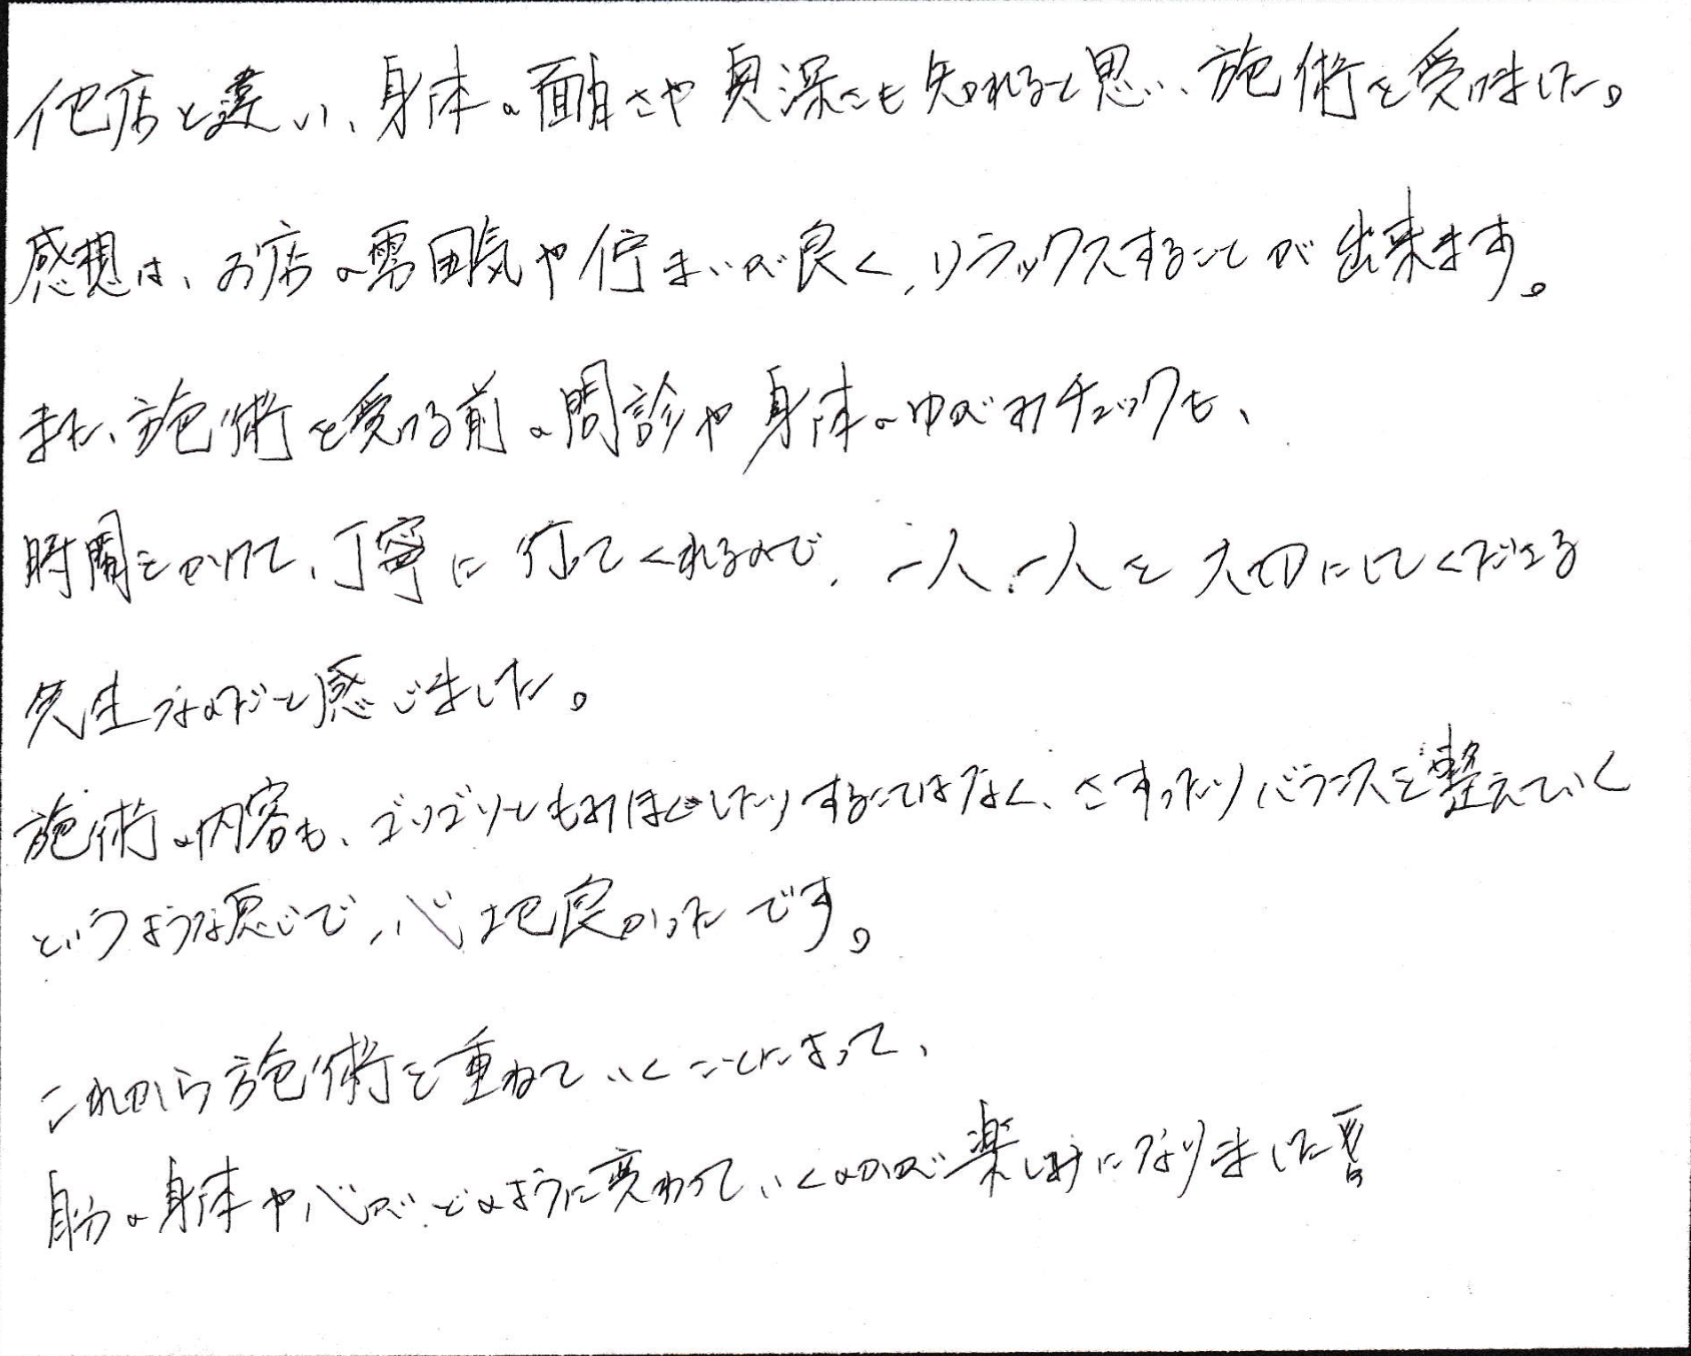 他店と違い、身体の面白さや奥深さも知れると思い、施術を受けました。
感想は、お店の雰囲気や佇まいが良く、リラックスすることが出来ます。
また、施術を受ける前の問診や身体のゆがみチェックも、
時間をかけて、丁寧に行ってくれるので、一人一人を大切にしてくださる
先生なのだと感じました。
施術の内容も、ゴリゴリともみほぐしたりすることはなく、さすったりバランスを整えていく
というような感じで、心地良かったです。
これから施術を重ねていくことによって、
自分の身体や心が、どのように変わっていくのかが楽しみになりました